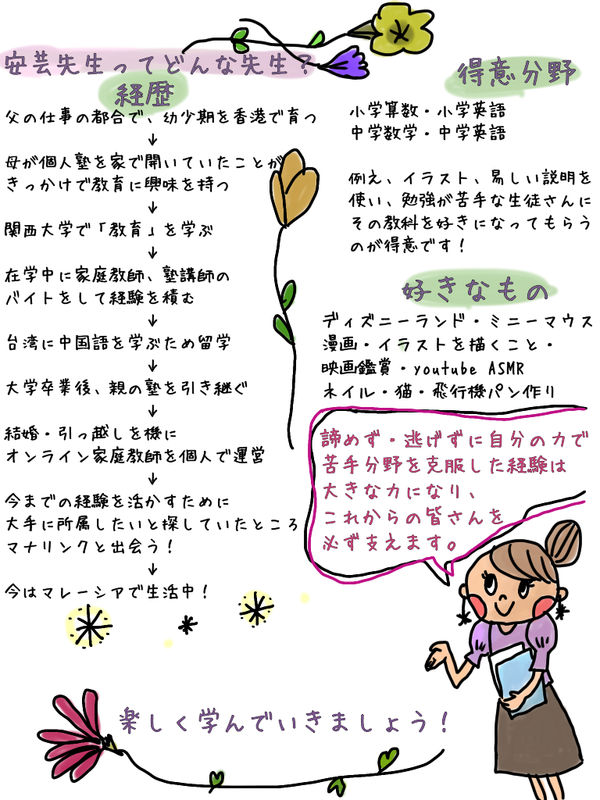 安芸先生ってどんな先生?
経歴
父の仕事の都合で、幼少期を香港で育つ
↓
母が個人塾を家で開いていたことが
きっかけで教育に興味を持つ
↓
関西大学で「教育」を学ぶ
↓
在学中に家庭教師、塾講師の
バイトをして経験を積む
↓
台湾に中国語を学ぶため留学
↓
大学卒業後、親の塾を引き継ぐ
↓
結婚・引っ越しを機に
オンライン家庭教師を個人で運営
↓
今までの経験を活かすために
大手に所属したいと探していたところ
マナリンクと出会う!
↓
今はマレーシアで生活中!
得意分野
小学算数・小学英語
中学数学・中学英語
例え、イラスト、易しい説明を
使い、勉強が苦手な生徒さんに
その教科を好きになってもらう
のが得意です!
好きなもの
ディズニーランド・ミニーマウス
漫画・イラストを描くこと・
映画鑑賞・youtube ASMR
ネイル・猫・飛行機パン作り
諦めず・逃げずに自分の力で
苦手分野を克服した経験は
大きな力になり、
これからの皆さんを
必ず支えます。
楽しく学んでいきましょう!